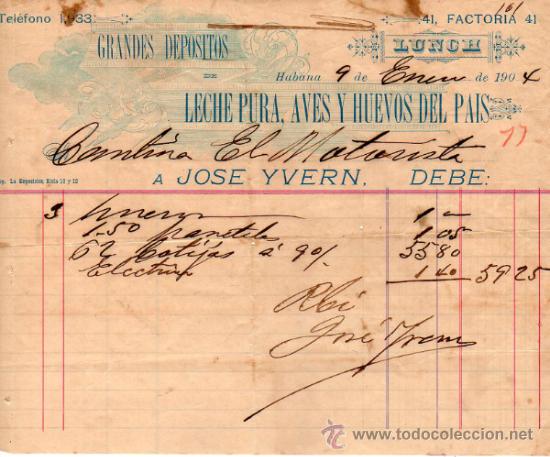 Teléfono 1033
41, FACTORIA 41
101
GRANDES DEPOSITOS
LUNCH
DE
Habana 9 de Enero de 1904
LECHE PURA, AVES Y HUEVOS DEL PAIS
77
Cantina El Motorista
Imp. La Exposición, Riela 10 y 12
A JOSE YVERN, DEBE:
3 1 "
1.50 1 05
62 botijas á 90/ 55 80
1 40 59 25
Rbi
José Yvern
www.todocoleccion.net